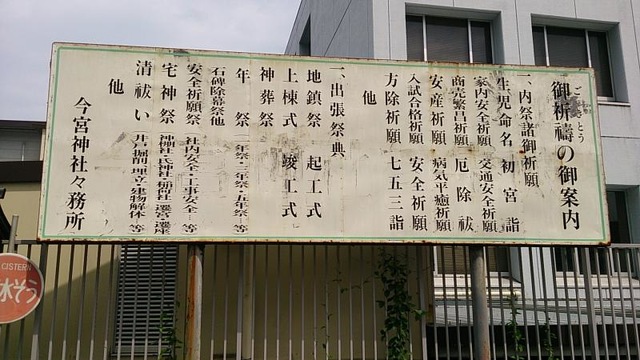 御祈禱の御案内
ごきとう
一、内祭諸御祈願
生児命名 初宮詣
家内安全祈願 交通安全祈願
商売繁昌祈願 厄除祓
安産祈願 病気平癒祈願
入試合格祈願 安全祈願
方除祈願 七五三詣
他
一、出張祭典
地鎮祭 起工式
上棟式 竣工式
神葬祭
年祭 一年祭・二年祭・五年祭…等
石碑除幕祭他
安全祈願祭 社内安全・工事安全…等
宅神祭 神棚・氏神社・稲荷社 遷宮・遷座
清祓い 井戸堀前・埋立・建物解体…等
他
今宮神社々務所
CISTERN
水そう